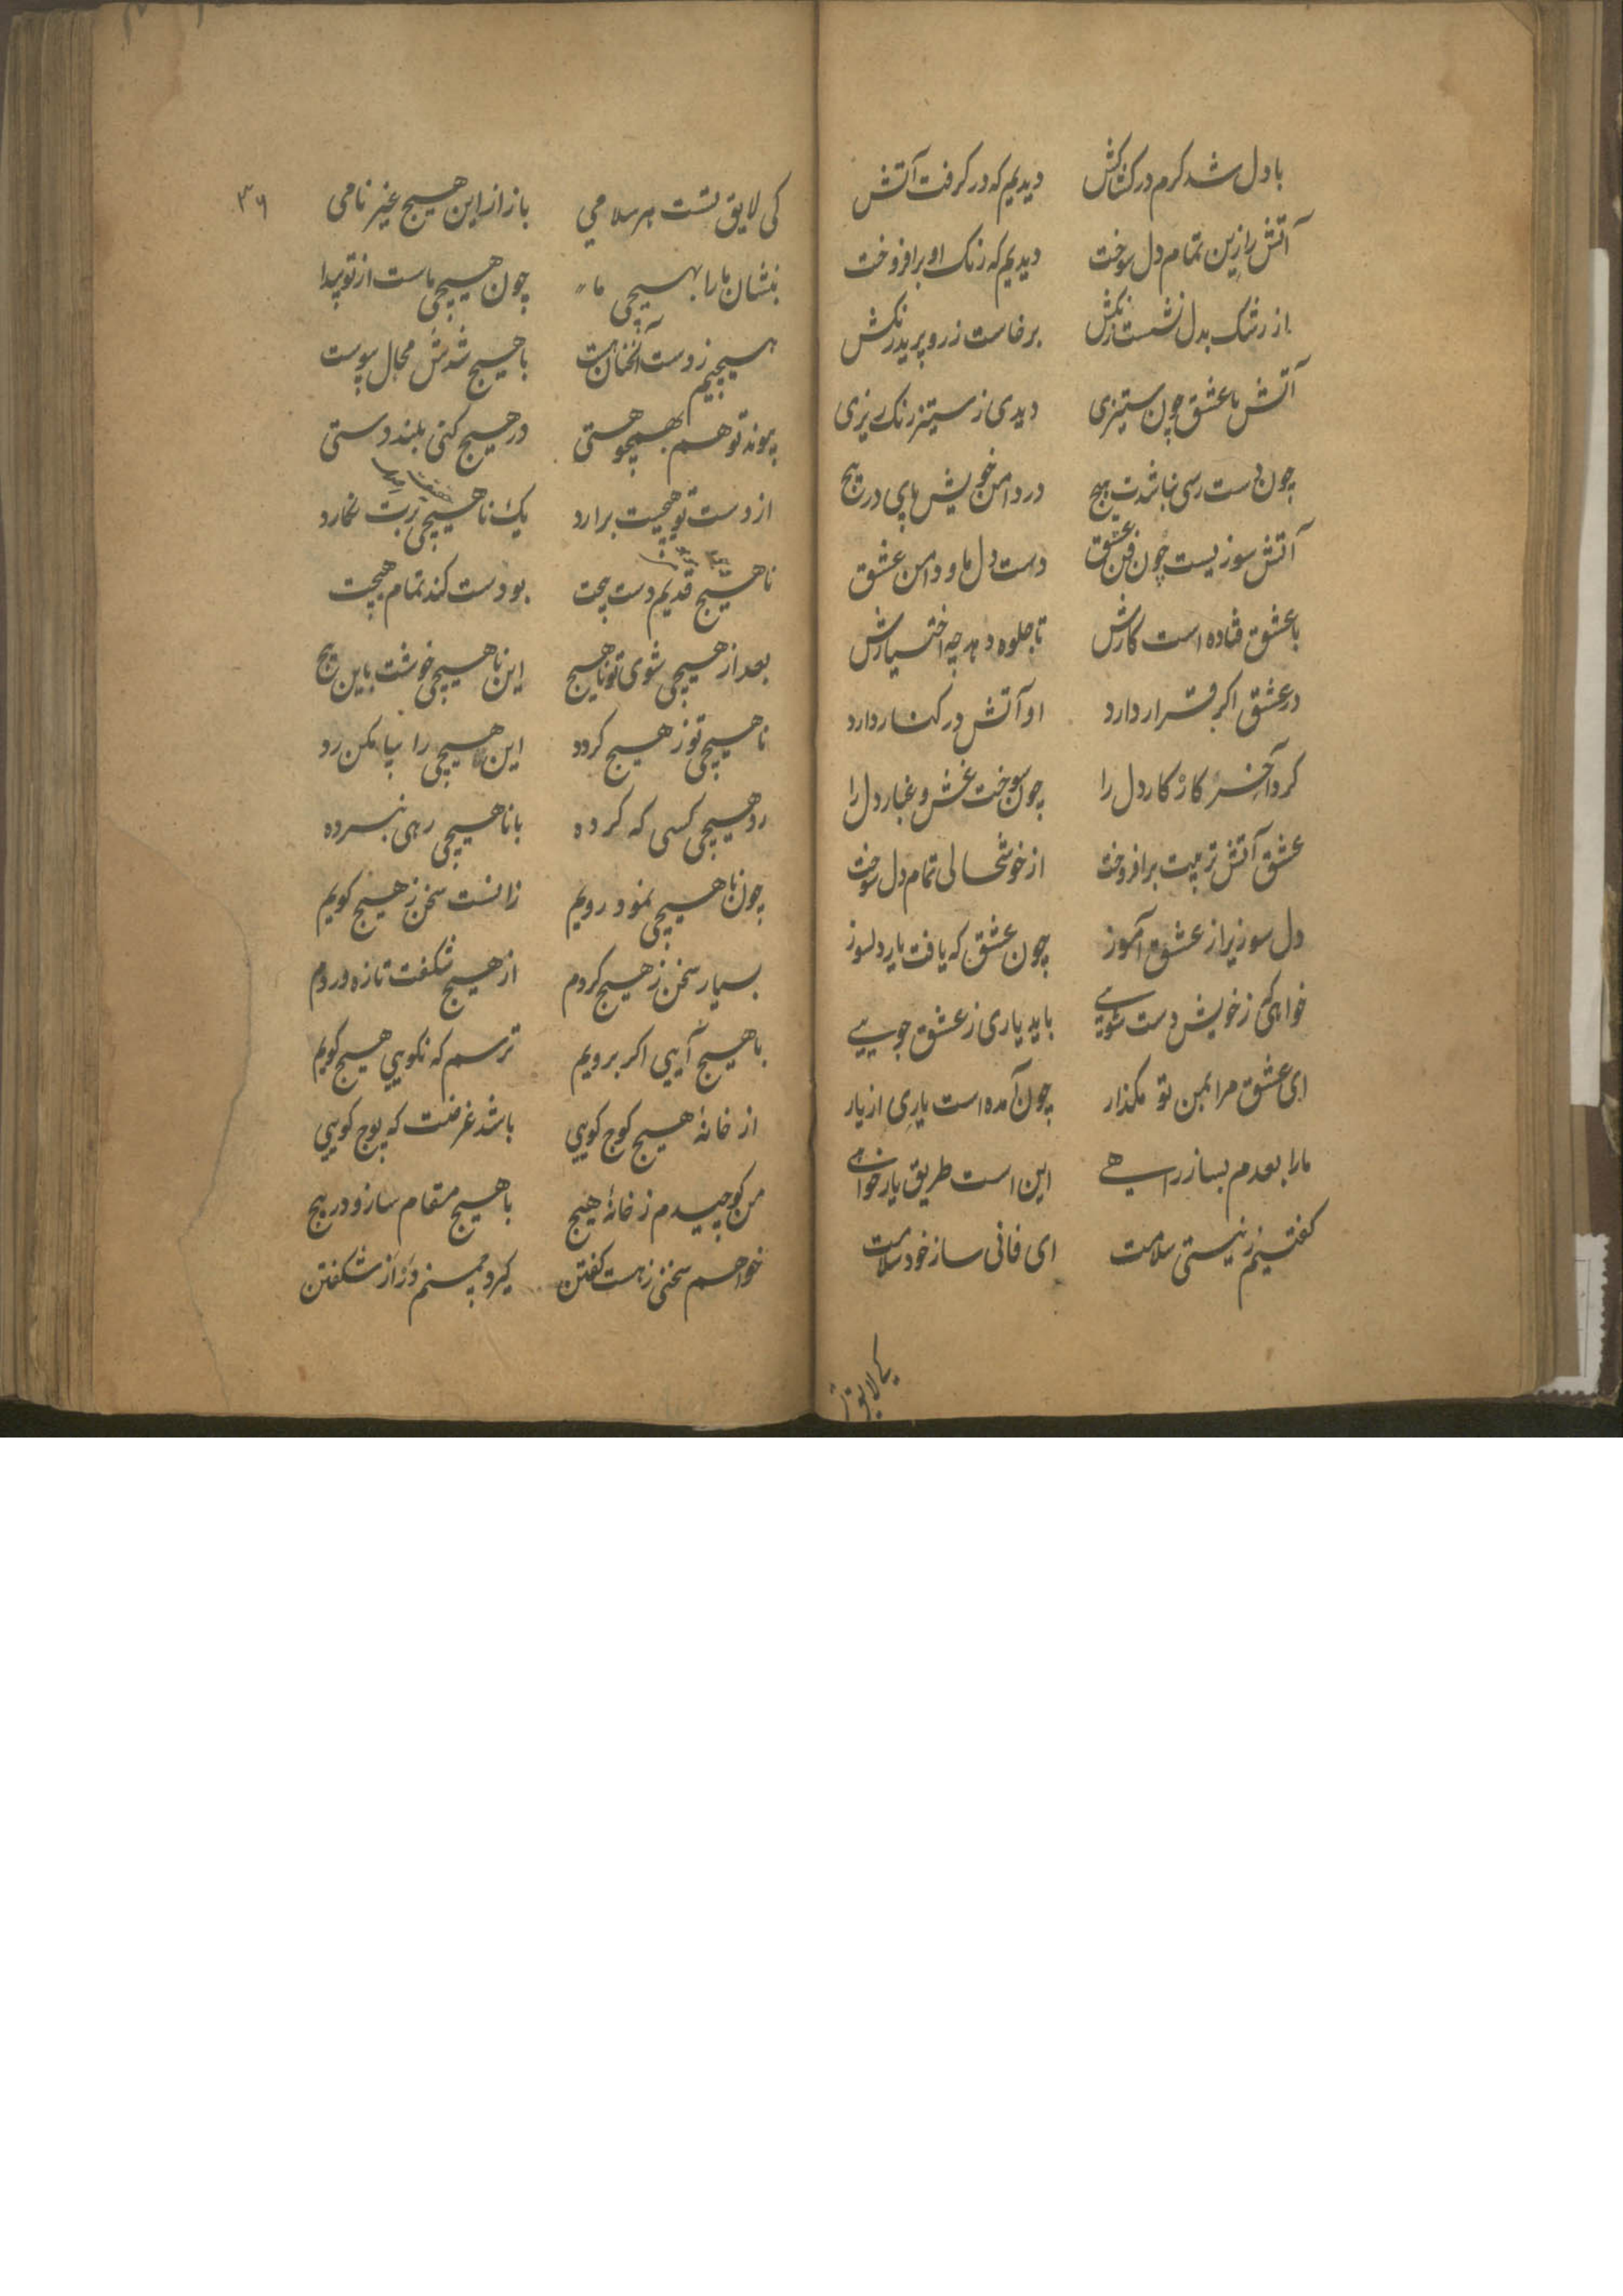 با دل شد کرم در کشاکش دیدیم که در کرفت آتش
آتش را زین تمام دل سوخت دیدیم که رنک او برافروخت
از رشک بدل نشست رنکش برخاست ز رو پرید رنکش
آتش با عشق چون ستیزی دیدی ز ستیز رنک ریزی
چون دست رسی نباشدت هیچ در دامن خویش پای در پیچ
آتش سوزیست چون فن عشق دست دل ما و دامن عشق
با عشق فتاده است کارش تا جلوه دهد چه اختیارش
در عشق اکر قرار دارد او آتش در کنار دارد
کرد آخر کار کار دل را چون سوخت غش و غبار دل را
عشق آتش تربیت برافروخت از خوشحالی تمام دل سوخت
دل سوزیرا ز عشق آموز چون عشق که یافت یار دلسوز
خواهی که ز خویش دست شویی باید یاری ز عشق جویی
ای عشق مرا بمن تو مکذار چون آمده است یاری از یار
ما را بعدم بساز راهی این است طریق یار خواهی
کفتیم ز نیستی سلامت ای فانی ساز خود سلامت
کی لایق
۳۶
کی لایق تست هر سلامی باز از این هیچ غیر نامی
بنشان ما را بهیچی ما چون هیچی ماست از تو پیدا
هیچیم ز دست آنچنان هست با هیچ شدش مجال پیوست
پیوند تو هم بهیچو هستی در هیچ کنی بلند دستی
از دست تو هیچیت برارد یک ناهیچی ربت نکارد
ناهیچ قدیم دست هیچت بو دست کند تمام هیچت
بعد از هیچی شوی تو ناهیچ این ناهیچی خوشت باین هیچ
ناهیچی تو ز هیچ کردد این هیچی را بیا مکن رد
رد هیچی کسی که کرده با ناهیچی رهی نبرده
چون ناهیچی نمود رویم زانست سخن ز هیچ کویم
بسیار سخن ز هیچ کردم از هیچ شکفت تازه وردم
با هیچ آیی اکر برویم ترسم که نکویی هیچ کویم
از خانهٔ هیچ کوچ کویی باشد غرضت که پوچ کویی
من کوچیدم ز خانهٔ هیچ با هیچ مقام ساز و در پیچ
خواهم سخنی ز هست کفتن کیرد چمنم ور از شکفتن